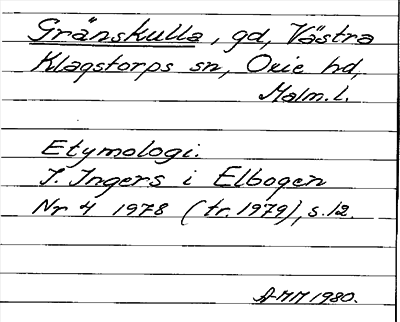 Gränskulla, gd, Västra
Klagstorps sn, Oxie hd,
Malm. l.
Etymologi.
I. Ingers i Elbogen
Nr 4 1978 (tr. 1979), s. 12.
AMM 1980.